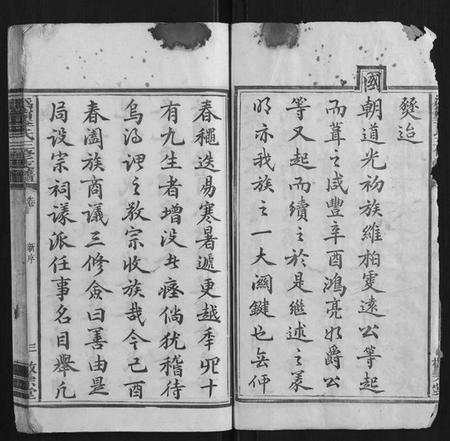 燹迨
國朝道光初族維柏雯遠公等起
而葺之咸豐辛酉鴻亮如爵公
等又起而續之於是繼述之美
明亦我族之一大關鍵也無
春穐迭易寒暑遞更越年十
有九生者增没者瘞倘犹稽待
烏得謂之敬宗收族哉今己酉
春闔族商議三修僉曰善由是
局設宗祠議派任事名目舉凡
氏三修族譜
卷
新序
三
堂